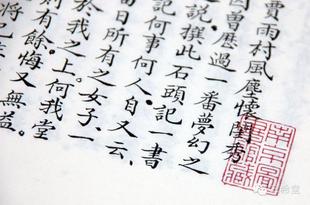 賈雨村風塵懷閨秀
因曾歷過一番夢幻之
說撰此石頭記一書
記何事何人自又云
當日所有之女子一
於我之上何我堂
則有餘悔又無益
將已